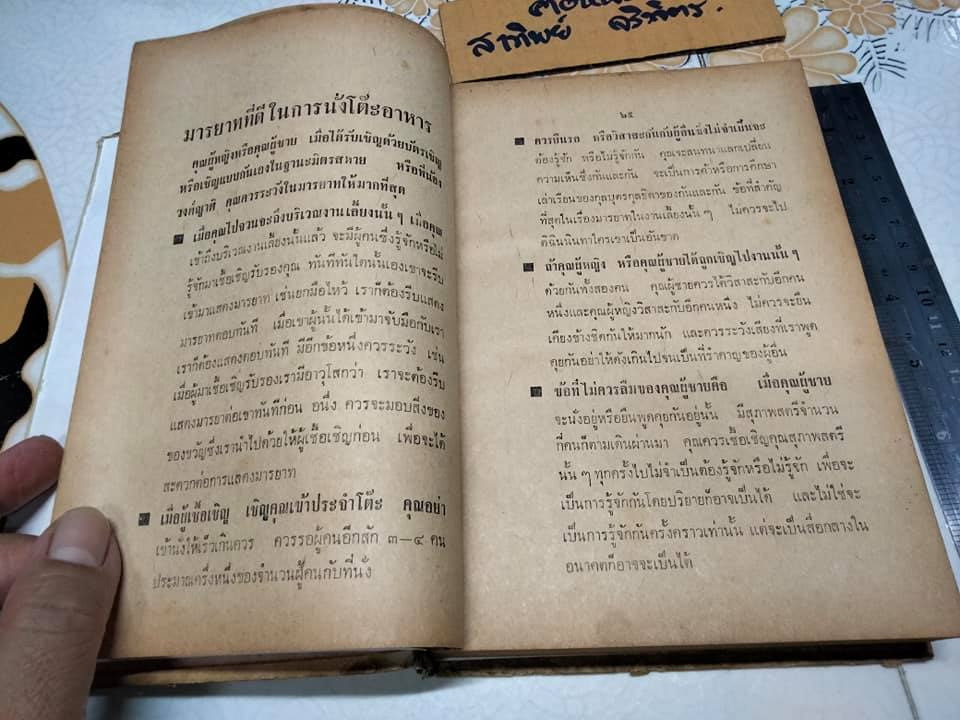 สาทิพย์
มารยาทที่ดีในการนั่งโต๊ะอาหาร
คุณผู้หญิงหรือคุณผู้ชาย เมื่อได้รับเชิญด้วยบัตรเชิญ
หรือเชิญแบบกันเองในฐานะมิตรสหาย หรือพี่น้อง
วงศ์ญาติ คุณควรระวังในมารยาทให้มากที่สุด
เมื่อคุณไปจวนจะถึงบริเวณงานเลี้ยงนั้น ๆ เมื่อคุณ
เข้าถึงบริเวณงานเลี้ยงนั้นแล้ว จะมีผู้คนซึ่งรู้จักหรือไม่
รู้จักมาเชื้อเชิญรับรองคุณ ทันทีทันใดนั้นเองเขาจะรีบ
เข้ามาแสดงมารยาท เช่นยกมือไหว้ เราก็ต้องรีบแสดง
มารยาทตอบทันที เมื่อเขาผู้นั้นได้เข้ามาจับมือกับเรา
เราก็ต้องแสดงตอบทันที มีอีกข้อหนึ่งควรระวัง เช่น
เมื่อผู้มาเชื้อเชิญรับรองเรามีอาวุโสกว่า เราจะต้องรีบ
แสดงมารยาตต่อเขาทันทีก่อน อนึ่ง ควรจะมอบสิ่งของ
ของขวัญซึ่งเรานำไปด้วยให้ผู้เชื้อเชิญก่อน เพื่อจะได้
สะดวกต่อการแสดงมารยาท
เมื่อผู้เชื้อเชิญ เชิญคุณเข้าประจำโต๊ะ คุณอย่า
เข้านั่งให้เร็วเกินควร ควรรอผู้คนอีกสัก ๓—๔ คน
ประมาณครึ่งหนึ่งของจำนวนผู้คนกับที่นั่ง
๒๕
ควรยืนรอ หรือวิสาสะกันกับผู้อื่นซึ่งไม่จำเป็นจะ
ต้องรู้จัก หรือไม่รู้จักกัน คุณจะสนทนาแลกเปลี่ยน
ความเห็นซึ่งกันและกัน จะเป็นการค้าหรือการศึกษา
เล่าเรียนของกุลบุตรกุลธิดาของกันและกัน ข้อที่สำคัญ
ที่สุดในเรื่องมารยาทในงานเลี้ยงนั้น ๆ ไม่ควรจะไป
ติฉินนินทาใครเขาเป็นอันขาด
ถ้าคุณผู้หญิง หรือคุณผู้ชายได้ถูกเชิญไปงานนั้น ๆ
ด้วยกันทั้งสองคน คุณผู้ชายควรได้วิสาสะกับอีกคน
หนึ่งและคุณผู้หญิงวิสาสะกับอีกคนหนึ่ง ไม่ควรจะยืน
เคียงข้างชิดกันให้มากนัก และควรระวังเสียงที่เราพูด
คุยกันอย่าให้ดังเกินไปจนเป็นที่รำคาญของผู้อื่น
ข้อที่ไม่ควรลืมของคุณผู้ชายคือ เมื่อคุณผู้ชาย
จะนั่งอยู่หรือยืนพูดคุยกันอยู่นั้น มีสุภาพสตรีจำนวน
กี่คนก็ตามเดินผ่านมา คุณควรเชื้อเชิญคุณสุภาพสตรี
นั้น ๆ ทุกครั้งไปไม่จำเป็นต้องรู้จักหรือไม่รู้จัก เพื่อจะ
เป็นการรู้จักกันโดยปริยายก็อาจเป็นได้ และไม่ใช่จะ
เป็นการรู้จักกันครั้งคราวเท่านั้น แต่จะเป็นสื่อกลางใน
อนาคตก็อาจจะเป็นได้